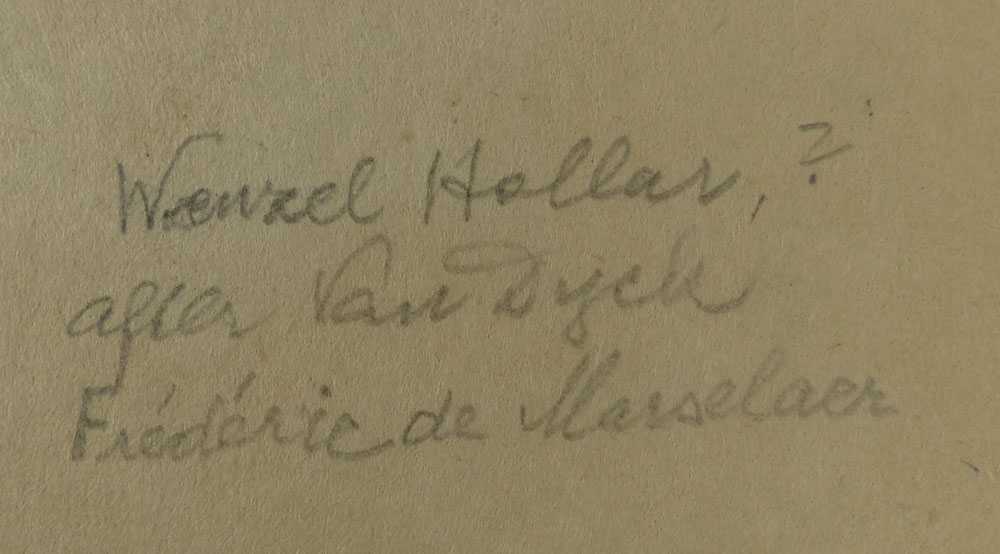 Wenzel Hollar, ?
after Van Dyck
Frédéric de Marselaer